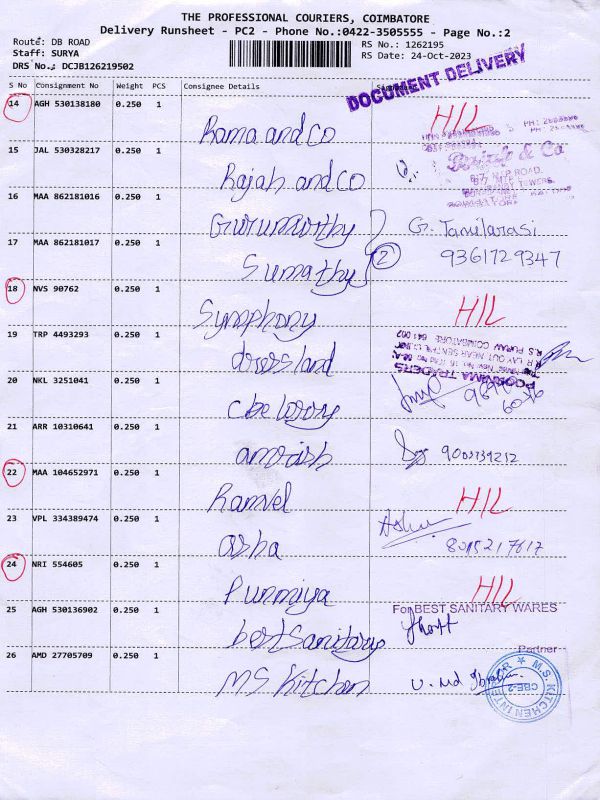 THE PROFESSIONAL COURIERS, COIMBATORE
Delivery Runsheet - PC2 - Phone No.:0422-3505555 - Page No.:2
Route: DB ROAD
Staff: SURYA
DRS No.: DCJB126219502
RS No.: 1262195
RS Date: 24-Oct-2023
DOCUMENT DELIVERY
S No Consignment No Weight PCS Consignee Details
14 AGH 530138180 0.250 1 Rama and Co H/L
15 JAL 530328217 0.250 1 Rajah and Co
16 MAA 862181016 0.250 1 Gurumorthy G. Tamilarasi
17 MAA 862181017 0.250 1 Sumathy 2 9361729347
18 NVS 90762 0.250 1 Symphony H/L
19 TRP 4493293 0.250 1 dress land
POORNIMA TRADERS
R.S PURAM COIMBATORE 641 002
20 NKL 3251041 0.250 1
21 ARR 10310641 0.250 1
22 MAA 104652971 0.250 1 Ramvel H/L
23 VPL 334389474 0.250 1 asha Asha
8015217617
24 NRI 554605 0.250 1 Punmiya H/L
25 AGH 530136902 0.250 1 best sanitary
For BEST SANITARY WARES
Partner
26 AMD 27705709 0.250 1 MS Kitchen
M.S. KITCHEN INTERIOR
CBE-2